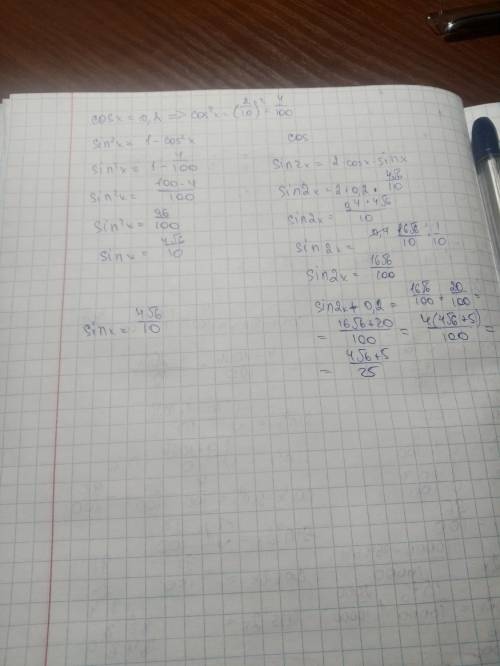 cosx = 0,2 => cos²x = (2/10)² = 4/100
sin²x = 1 - cos²x
sin²x = 1 - 4/100
sin²x = 100-4/100
sin²x = 96/100
sinx = 4√6/10
sinx = 4√6/10
cos
sin2x = 2·cosx·sinx
sin2x = 2·0,2·4√6/10
sin2x = 0,4·4√6/10
sin2x = 16√6/10 · 1/10
sin2x = 16√6/100
sin2x + 0,2 = 16√6/100 + 20/100 =
= 16√6+20/100 = 4(4√6+5)/100 =
= 4√6+5/25